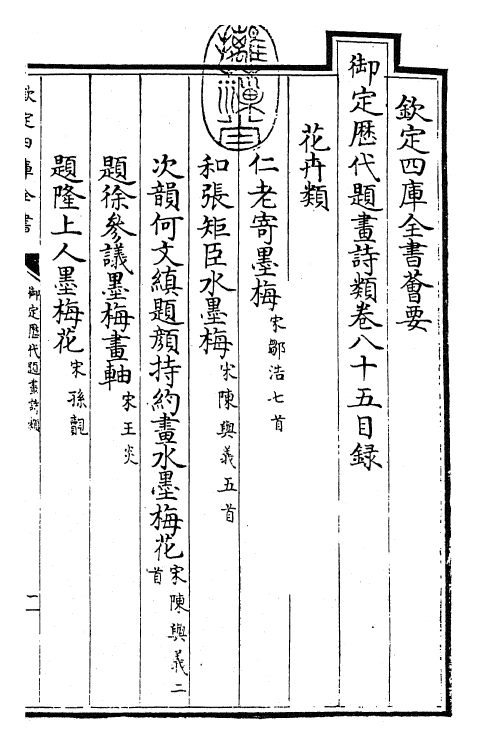 欽定四庫全書薈要
御定歴代題畫詩類卷八十五目録
花卉類
仁老寄墨梅宋鄒浩七首
和張矩臣水墨梅宋陳與義五首
次韻何文縝題顔持約畫水墨梅花宋陳與義二首
題徐參議墨梅畫軸宋王炎
題隆上人墨梅花宋孫覿
欽定四庫全書
御定歴代題畫詩類